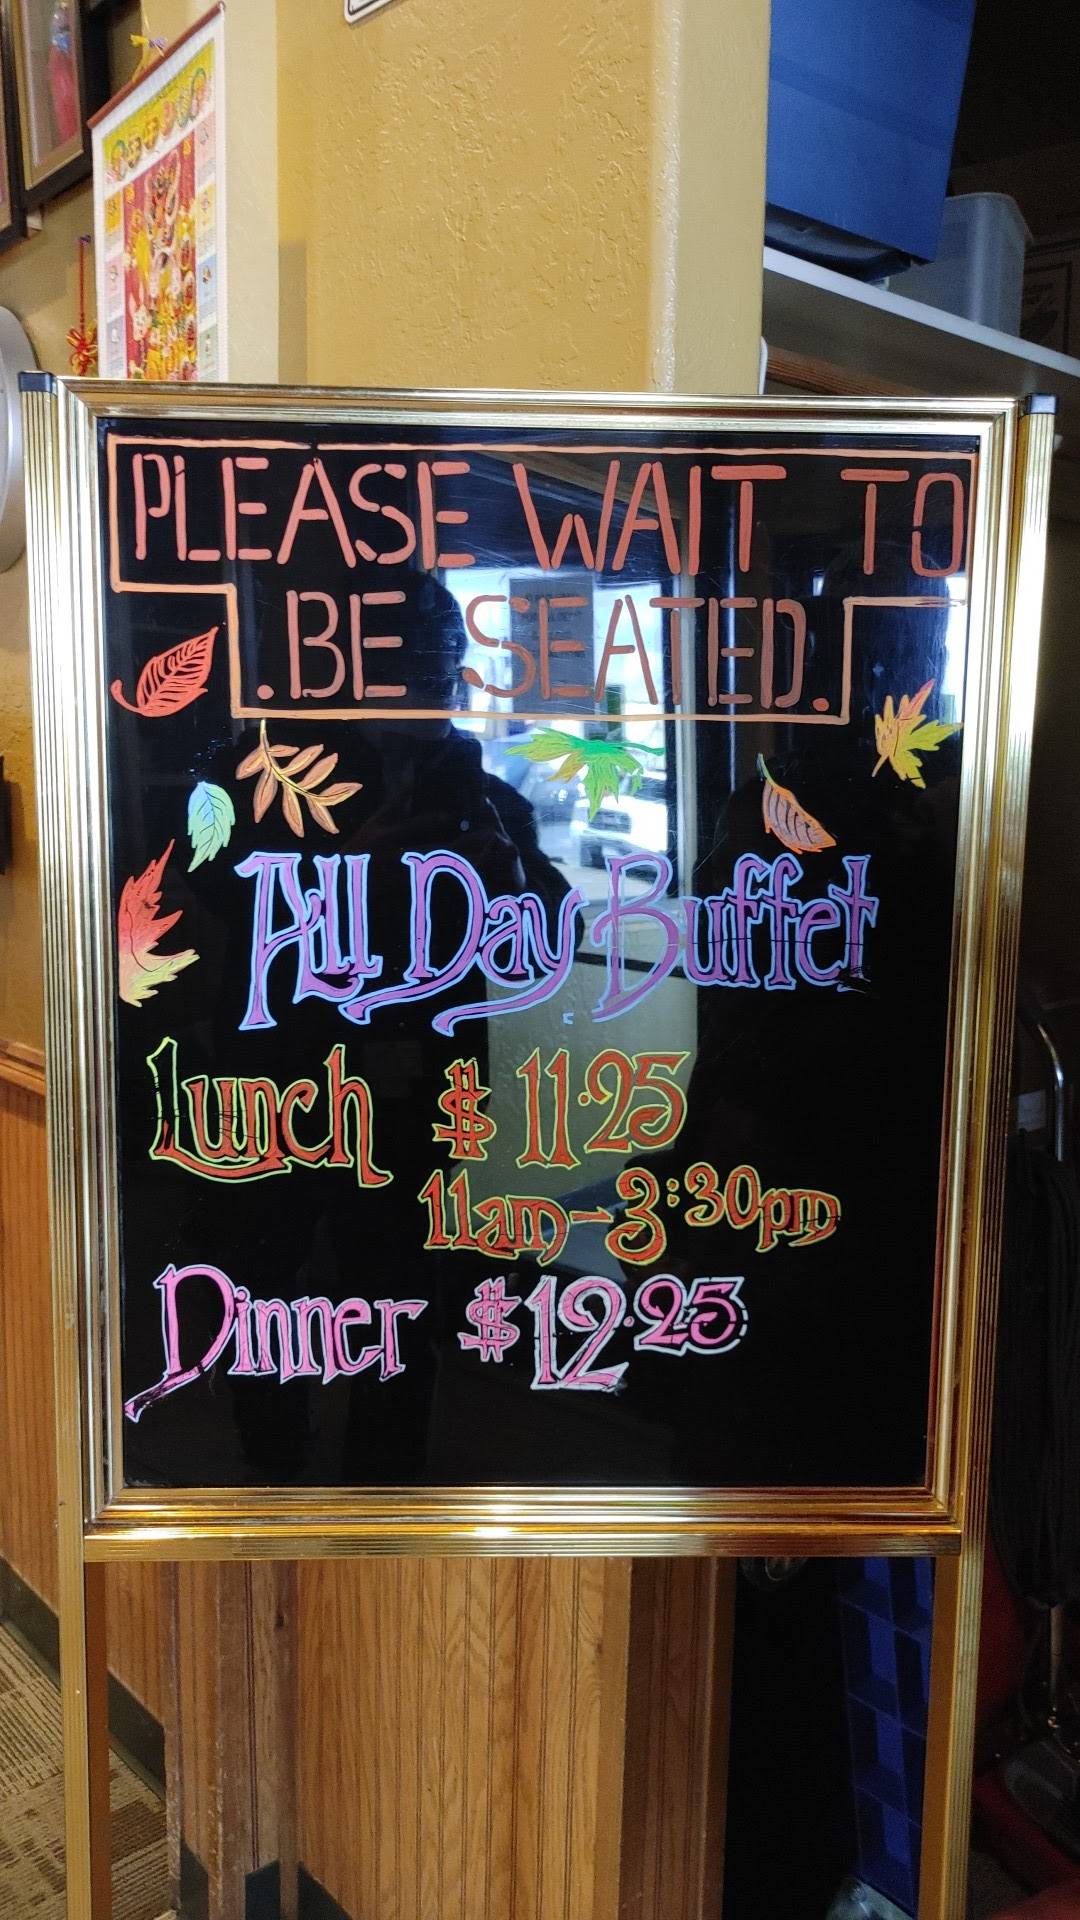 PLEASE WAIT TO
BE SEATED.
All Day Buffet
Lunch $11.25
11am-3:30pm
Dinner $12.25